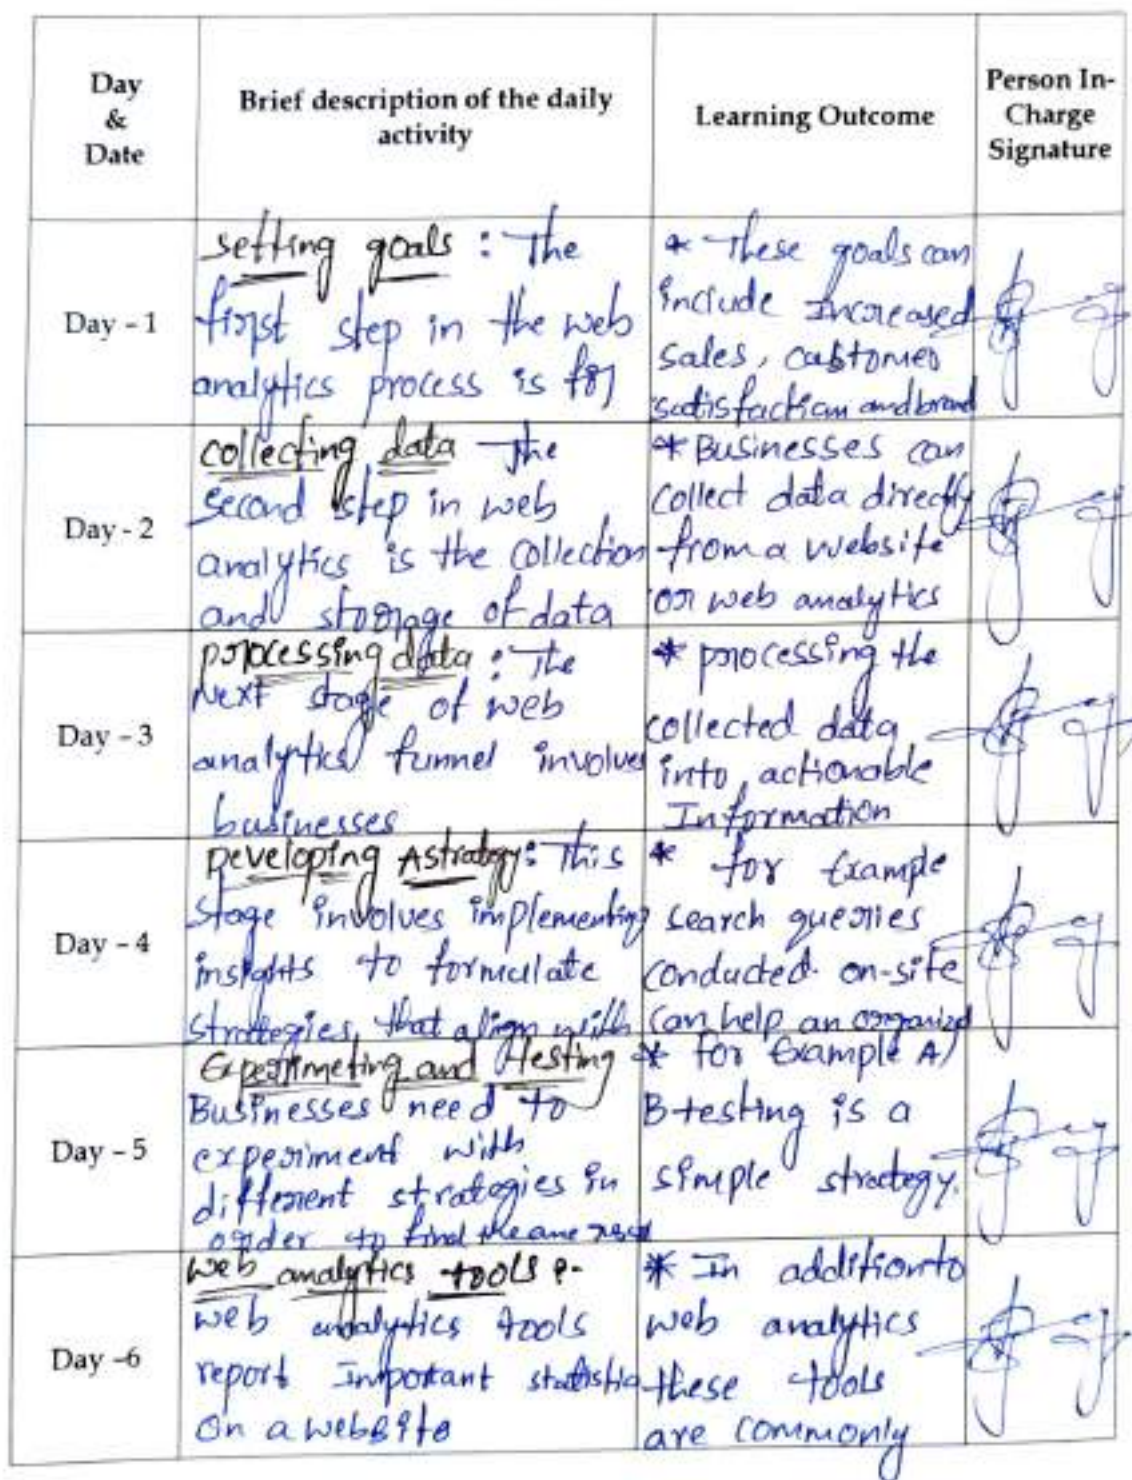 Day
&
Date
Brief description of the daily
activity
Learning Outcome
Person In-
Charge
Signature
Day - 1
setting goals : The
first step in the web
analytics process is for
* These goals can
include Increased
sales, customer
satisfaction and brand
Day - 2
collecting data The
second step in web
analytics is the collection
and storage of data
* Businesses can
collect data directly
from a website
or web analytics
Day - 3
processing data : The
Next stage of web
analytics funnel involves
businesses
* processing the
collected data
into actionable
Information
Day - 4
Developing A strategy : This
stage involves implementing
insights to formulate
strategies, that align with
* for Example
search queries
conducted on-site
can help an organized
Day - 5
Experimeting and Htesting
Businesses need to
experiment with
different strategies in
order to find the one
* for Example A/
B testing is a
simple strategy.
Day -6
web analytics tools :-
web analytics tools
report Important
on a website
* In addition to
web analytics
these tools
are commonly